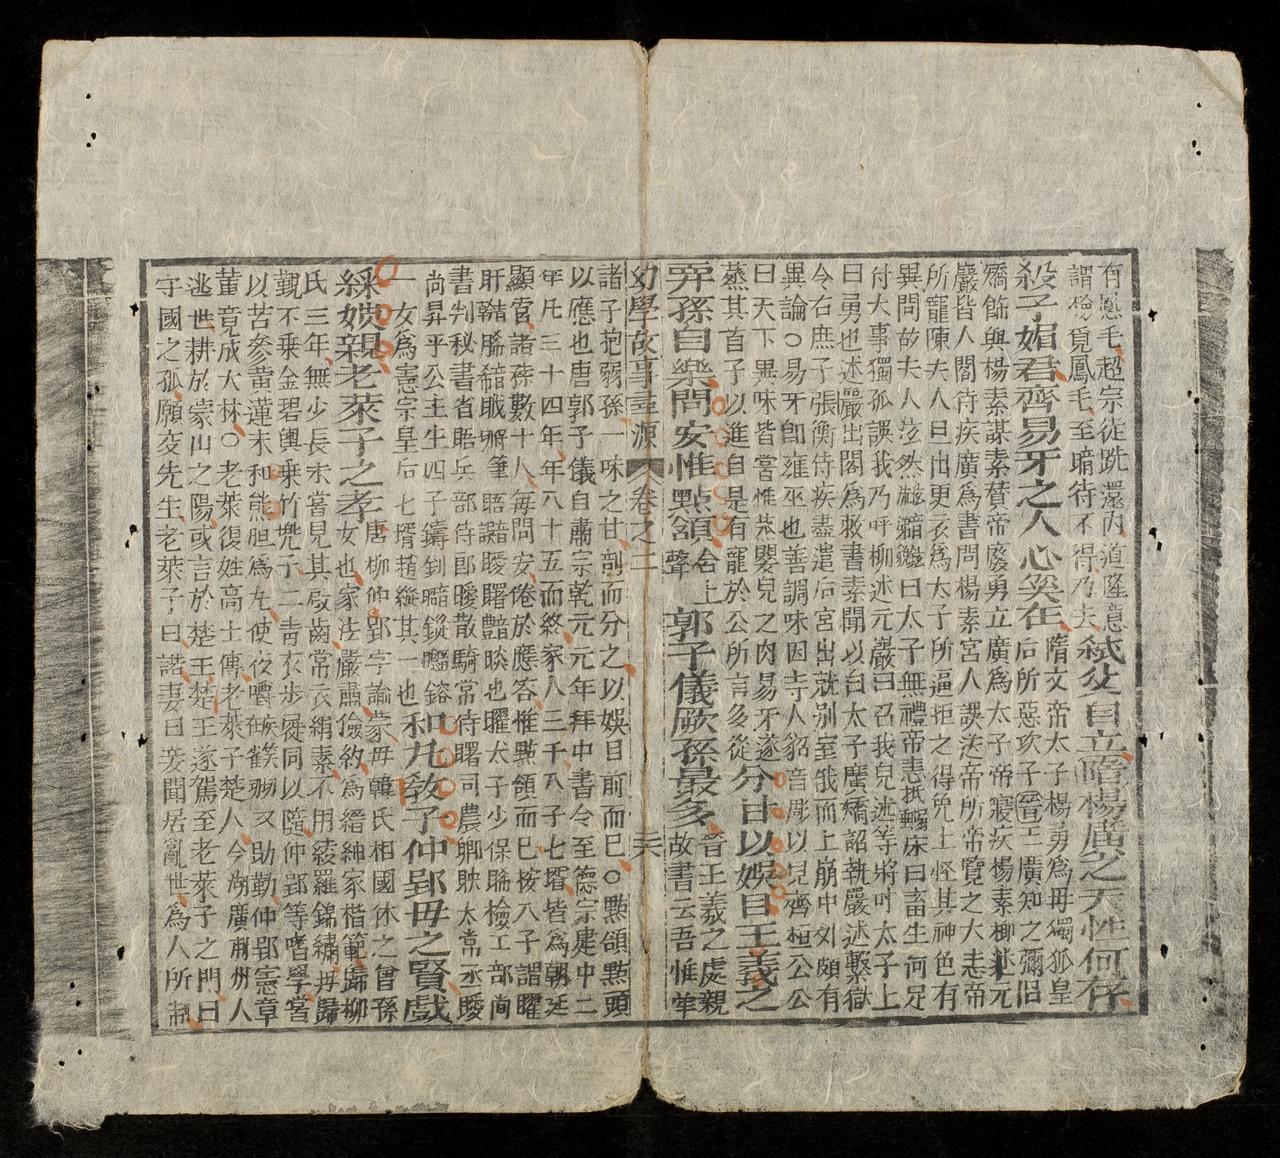 有鳳毛超宗徒跣還內道隆意
謂檢覓鳳毛至暗待不得乃去弒父自立隋楊廣之天性何存
殺子媚君齊易牙之人心奚在隋文帝太子楊勇為毋獨孤皇
后所惡次子晉王廣知之彌自
矯飾與楊素謀素賛帝廢勇立廣為太子帝寢疾楊素柳述元
巖皆人閤侍疾廣為書問楊素宮人誤送帝所帝覽之大恚帝
所寵陳夫人旦出更衣為太子所逼拒之得免上怪其神色有
異問故夫人泫然曰太子無禮帝恚抵床曰畜生何足
付大事獨孤誤我乃呼柳述元巖曰召我兒述等將呼太子上
曰勇也述巖出閣為敕書素聞以白太子廣矯詔執巖述繫獄
令右庶子張衡侍疾盡遣后宮出就别室俄而上崩中外頗有
異論○易牙卽雍巫也善調味因寺人貂音彫以見齊桓公公
曰天下異味皆嘗惟蒸嬰兒之肉易牙遂
蒸其首子以進自是有寵於公所言多從分甘以娛目王羲之
弄孫自樂問安惟點頷含上聲郭子儀厥孫最多晉王羲之處親
故書云吾惟筆
幼學故事尋源 卷之二 二六
諸子抱弱孫一味之甘剖而分之以娛目前而已○點頷點頭
以應也唐郭子儀自肅宗乾元元年拜中書令至德宗建中二
年凡三十四年年八十五而終家人三千八子七壻皆為朝廷
顯官諸孫數十人每問安倦於應答惟點頷而已按八子謂曜
旰晞昢晤曖曙映也曜太子少保晞檢工部尚
書判秘書省晤兵部侍郎曖散騎常侍曙司農卿映太常丞曖
尚昇平公主生四子鑄釗鏦
一女為憲宗皇后七壻趙縱其一也和丸教子仲郢毋之賢戲
綵娛親老萊子之孝唐柳仲郢字諭蒙毋韓氏相國休之曾孫
女也家法嚴肅儉約為縉紳家楷範歸柳
氏三年無少長未嘗見其啟齒常衣絹素不用綾羅錦繡每歸
覲不乗金碧輿乗竹兠子二青衣步屣同以隨仲郢等嗜學嘗
以苦參黃蓮末和熊胆為丸使夜嚼以助勤仲郢憲章
董竟成大林○老萊復姓高士傳老萊子楚人今湖廣荆州人
逃世耕於蒙山之陽或言於楚王楚王遂駕至老萊子之門曰
守國之孤願変先生老萊子曰諾妻曰妾聞居亂世為人所制